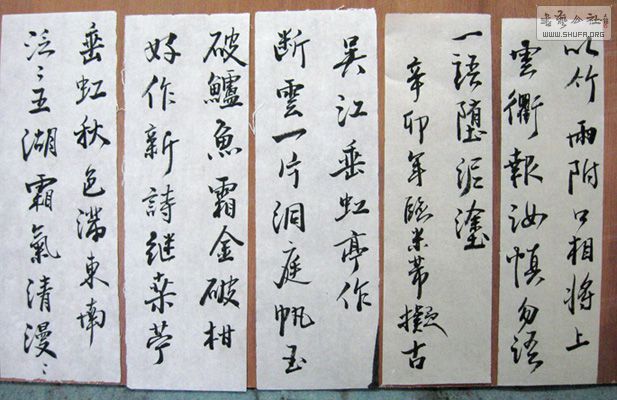 書藝公社
WWW.SHUFA.ORG
以竹兩附口相将上
雲衢報汝慎勿語
一語堕泥塗
辛卯年臨米芾擬古
吴江垂虹亭作
断雲一片洞庭帆玉
破鱸魚霜金破柑
好作新詩継桑苧
垂虹秋色满東南
泛〻五湖霜氣清漫〻